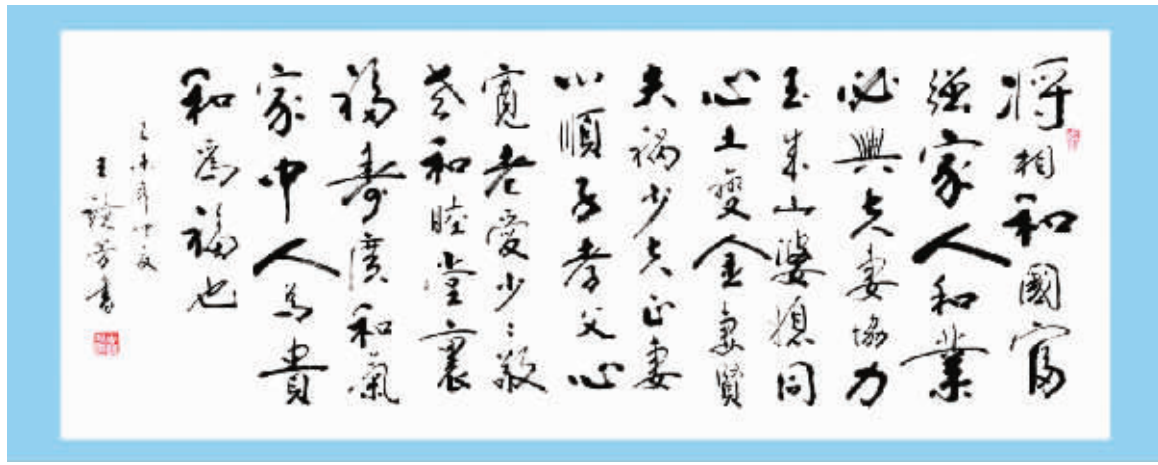 将相和國富
强家人和業
必興夫妻協力
玉成山婆媳同
心土變金妻賢
夫禍少夫正妻
心順子孝父心
寬老愛少〻敬
老和睦堂裏
福壽廣和氣
家中人為貴
和爲福也
乙未年仲夏
王 芳書